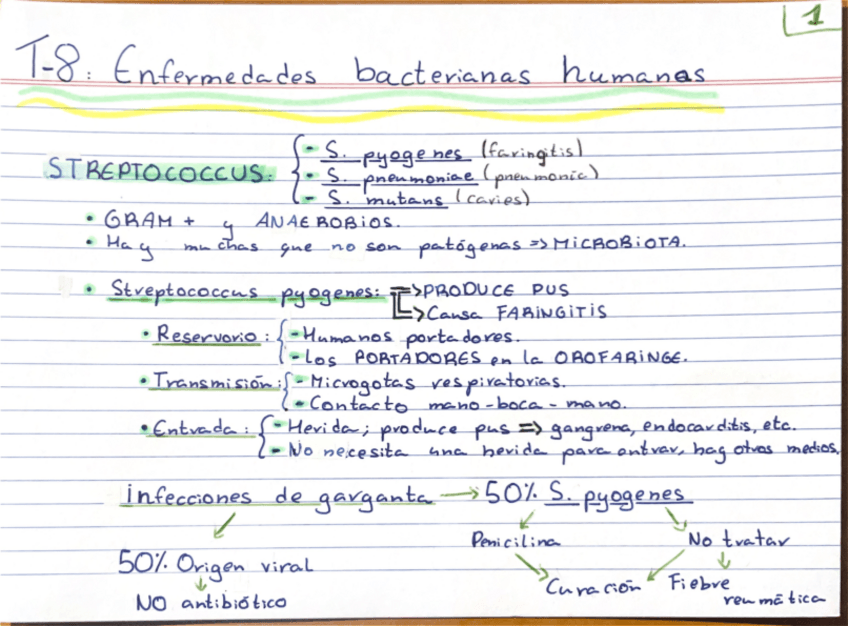 1
T-8: Enfermedades bacterianas humanas
STREPTOCOCCUS:
- S. pyogenes (faringitis)
- S. pneumoniae (pneumonia)
- S. mutans (caries)
• GRAM + y ANAEROBIOS.
• Hay muchas que no son patógenas => MICROBIOTA.
• Streptococcus pyogenes: => PRODUCE PUS
-> Causa FARINGITIS
• Reservorio: - Humanos portadores.
- Los PORTADORES en la OROFARINGE.
• Transmisión: - Microgotas respiratorias.
- Contacto mano-boca-mano.
• Entrada: - Herida; produce pus => gangrena, endocarditis, etc.
- No necesita una herida para entrar, hay otros medios.
Infecciones de garganta -> 50% S. pyogenes
Penicilina No tratar
50% Origen viral
Curación Fiebre
reumática
NO antibiótico